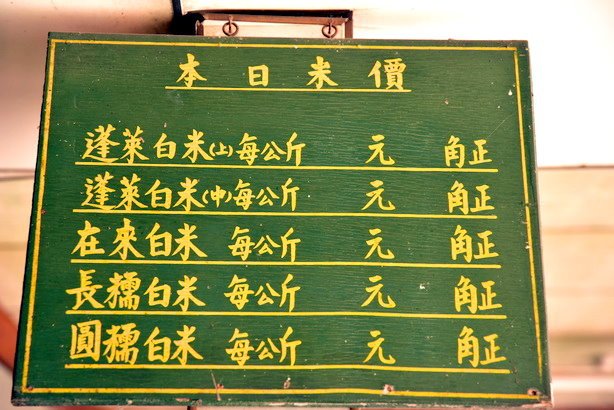 本日米價
蓬萊白米(上)每公斤 元 角正
蓬萊白米(中)每公斤 元 角正
在來白米 每公斤 元 角正
長糯白米 每公斤 元 角正
圓糯白米 每公斤 元 角正